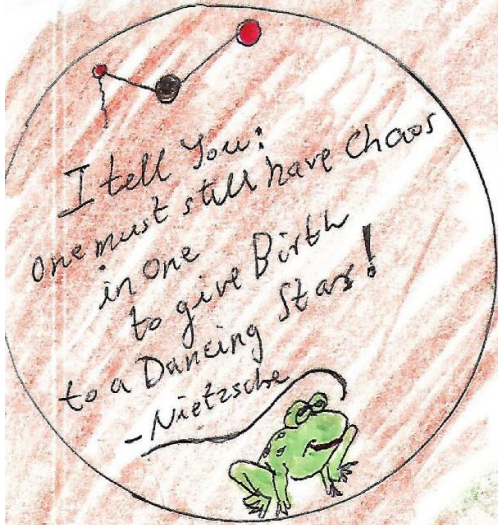 I tell You:
one must still have Chaos
in One
to give Birth
to a Dancing Star!
-Nietzsche